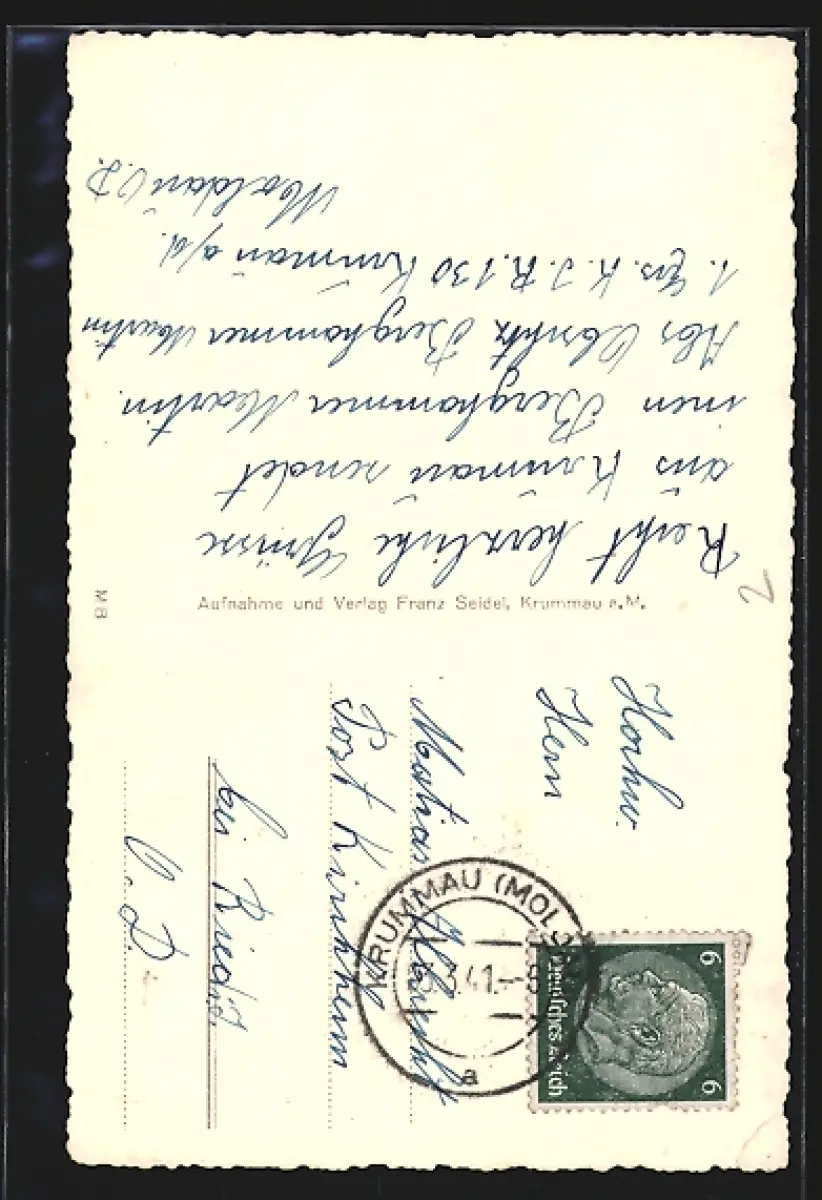 Recht herzliche Grüsse
aus Krumau sendet
inen Berghammer Martin
Abs. Berghammer Martin
1. K. J. R. 130 Krumau a/d.
Moldau O.D.
Aufnahme und Verlag Franz Seidel, Krummau a.M.
M B
2
Hochw.
Herrn
Matias Albrecht
Post Kirchheim
bei Ried i.I.
O. D.
KRUMMAU (MOLDAU)
3.41.-8
a
Deutsches Reich
6
6